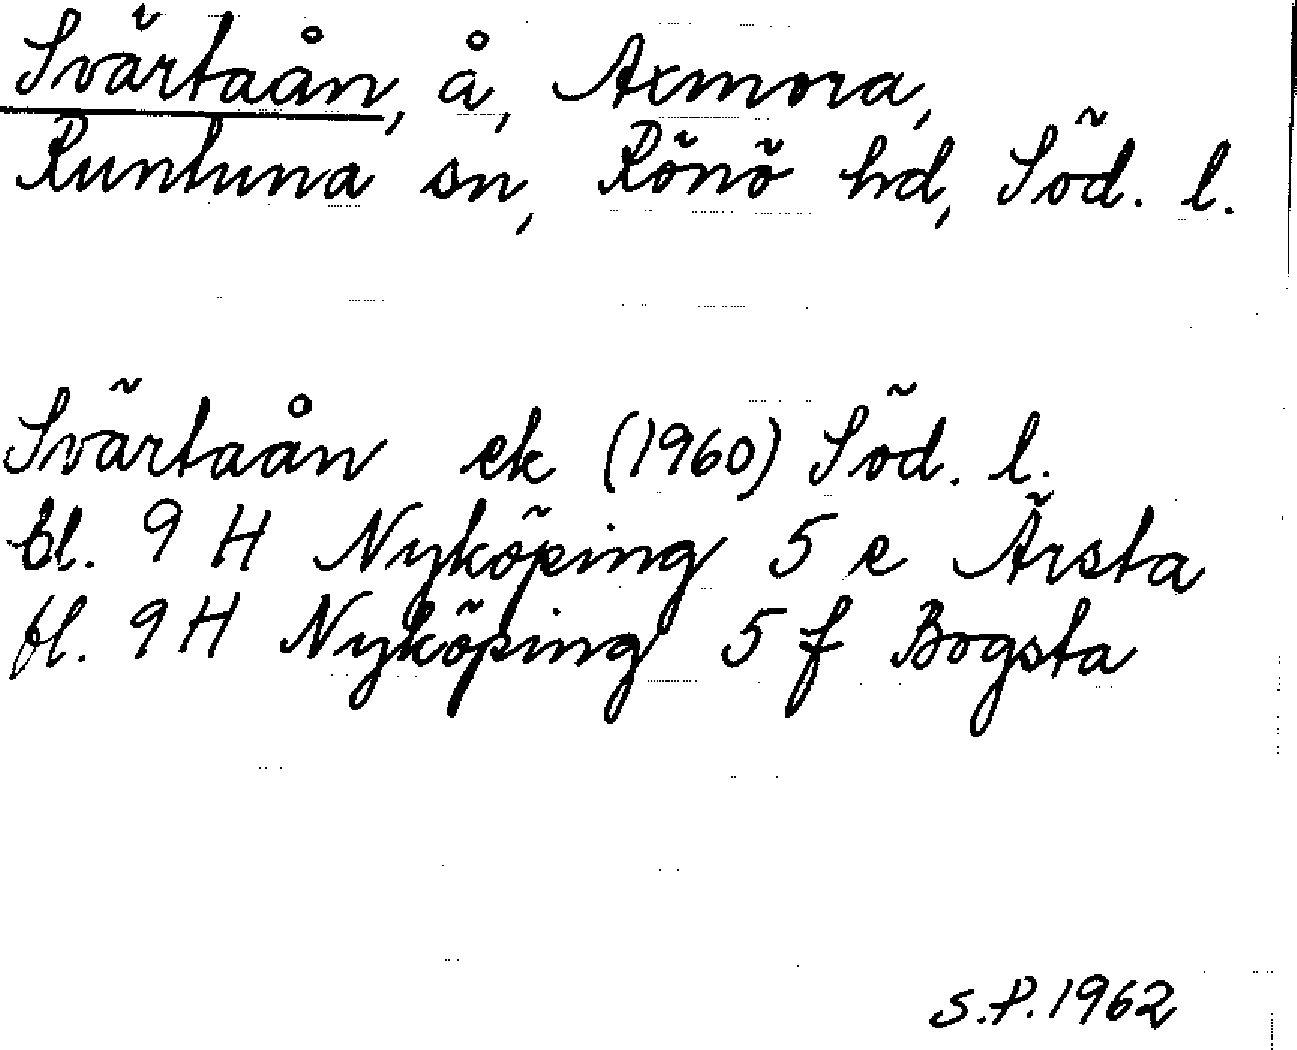 Svärtaån, å, Axmora,
Runtuna sn, Rönö hd, Söd. l.
Svärtaån ek (1960) Söd. l.
bl. 9 H Nyköping 5 e Ärsta
bl. 9 H Nyköping 5 f Bogsta
S.P. 1962